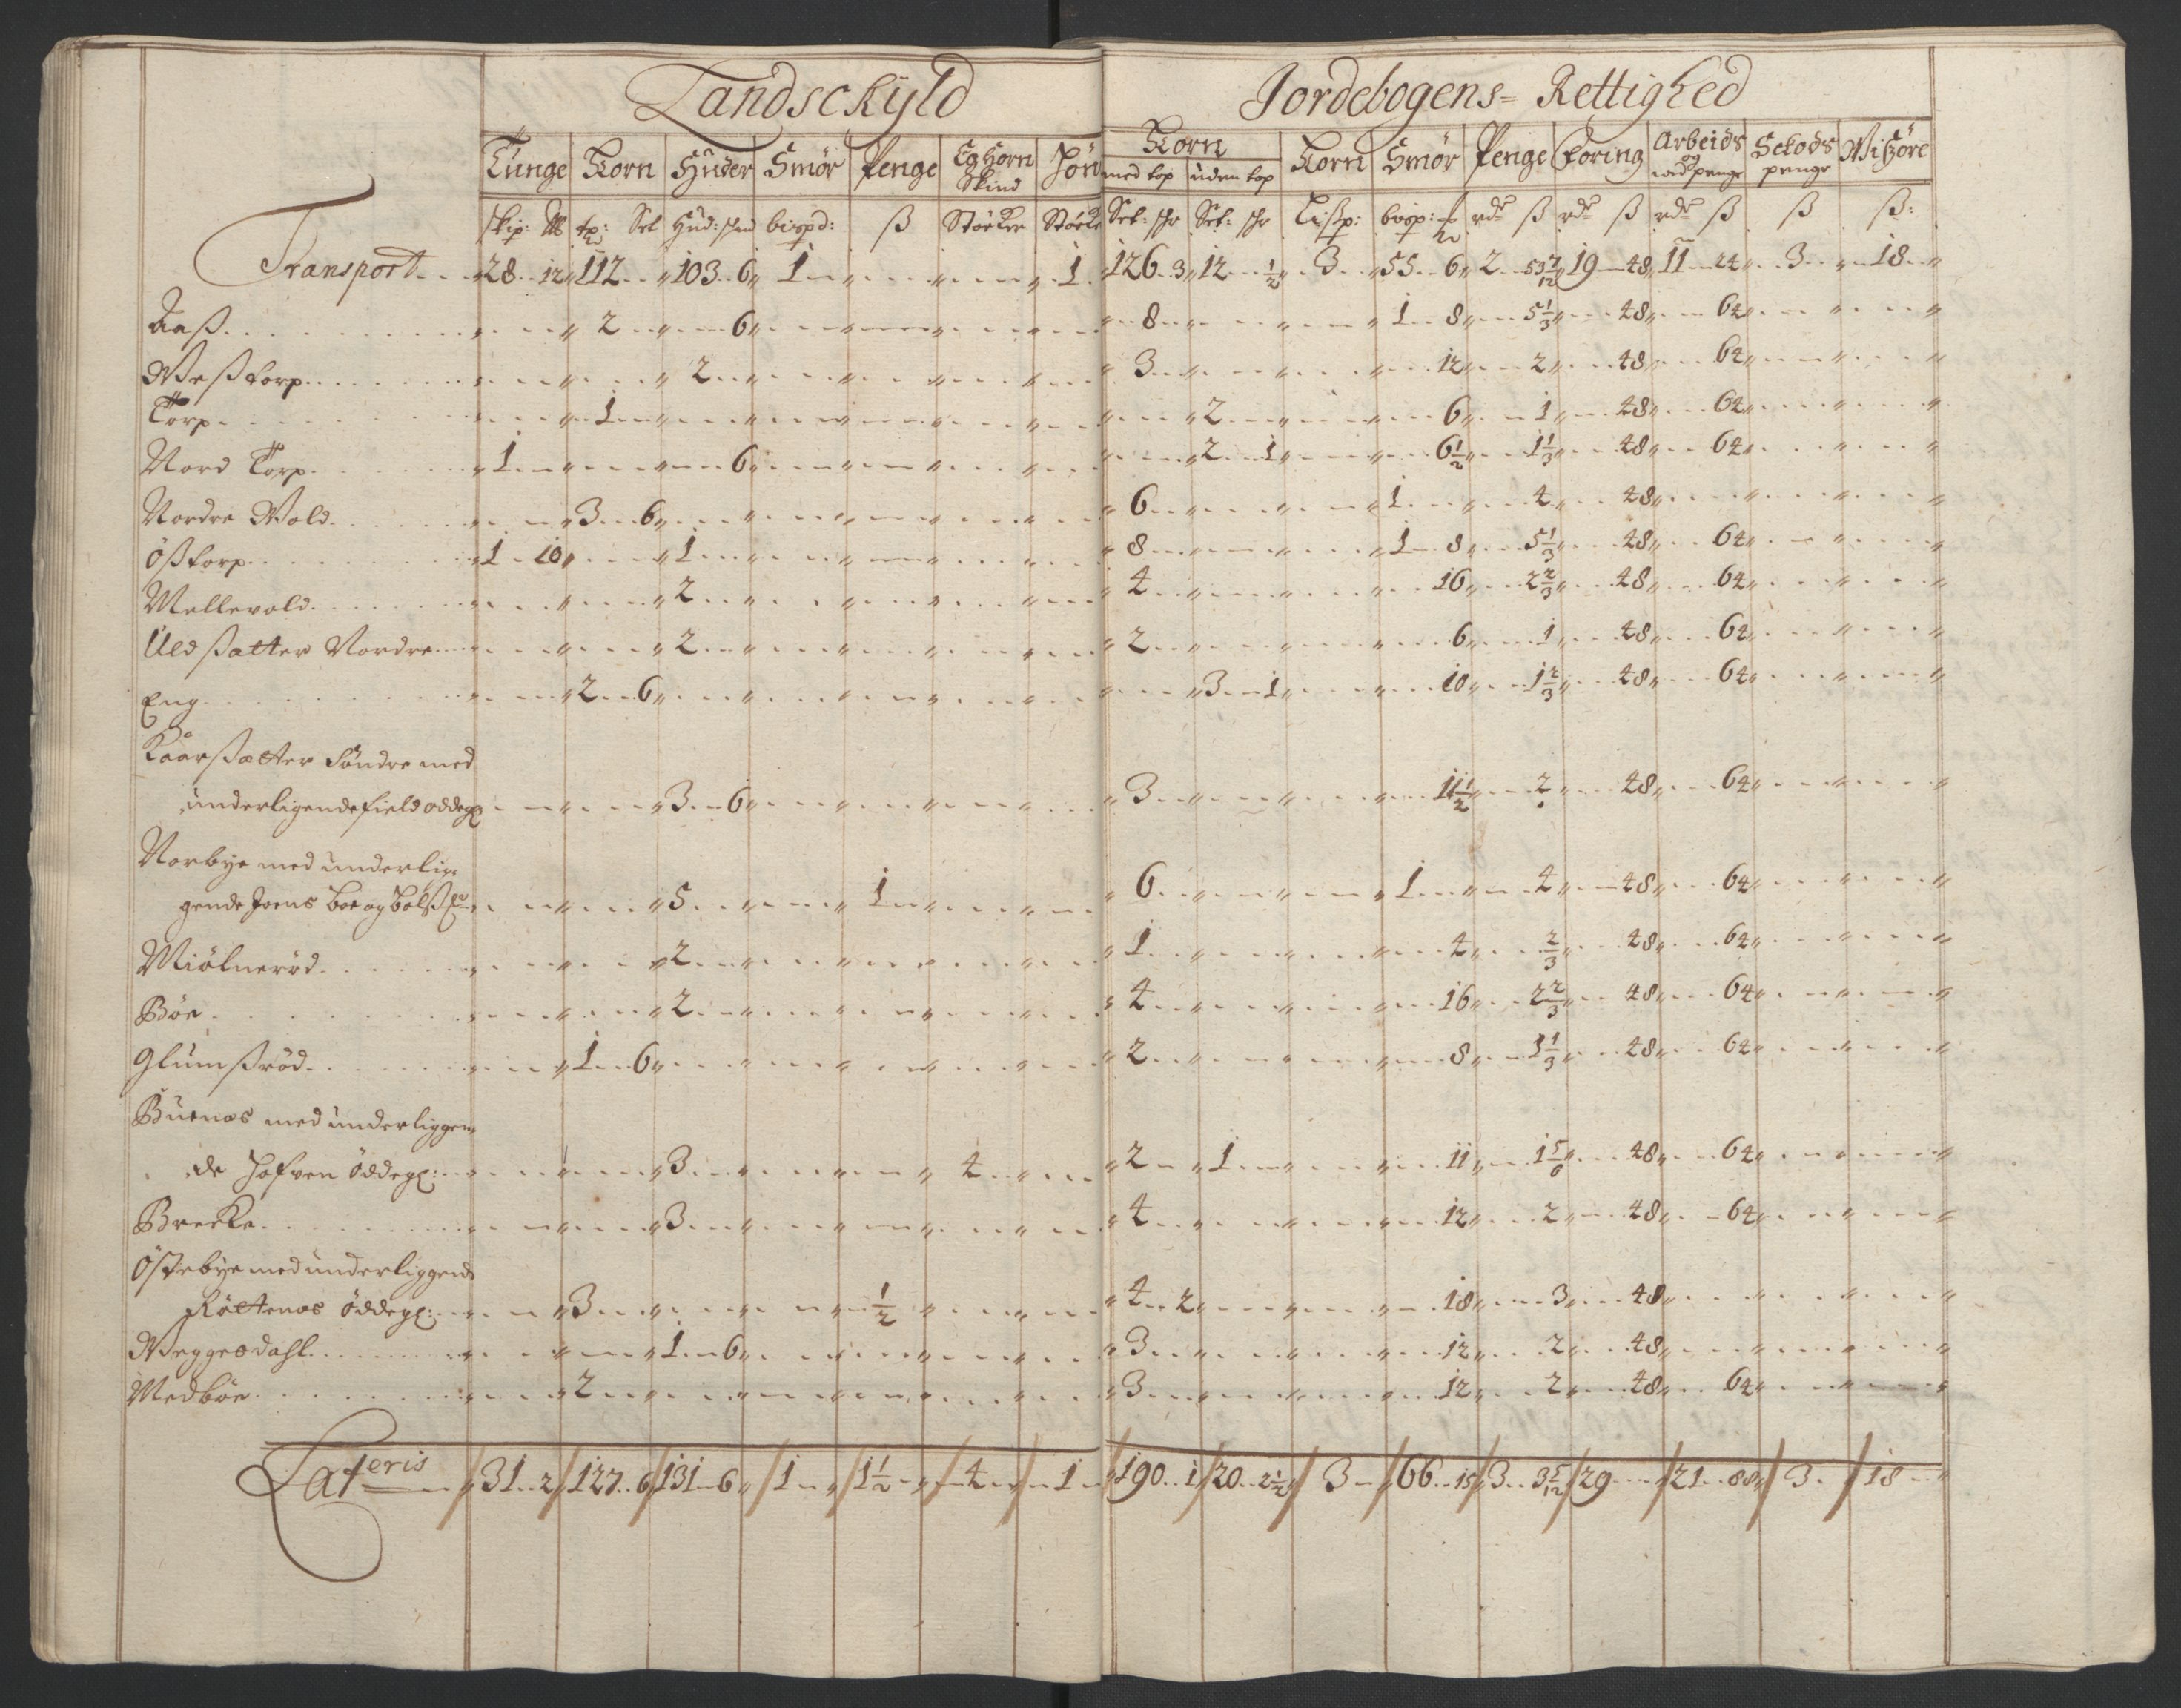 Landschyld Jordebogens= Rettighed
Tunge Korn Huder Smør Penge Eghorn Skind Korn Korn Smør Penge Foring Arbeids Skods Witøre
med top uden top og penge penge
skip: Sel Hud: bispd: ß Støcker Støcker Set: Set: Lißp: bisp: rdr ß rdr ß rdr ß ß ß:
Transport 28 12 112 103 6 1 1 126 3 12 1/2 3 55 6 2 53 7/12 19 48 11 24 3 18
Aaß 2 6 8 1 8 5 1/3 48 64
Weßtorp 2 3 12 2 48 64
Torp 1 2 6 1 48 64
Nord Torp 1 6 2 1 6 1/2 1 1/3 48 64
Nordre Wold 3 6 6 1 4 48
Ößtorp 1 10 1 8 1 8 5 1/3 48 64
Mellevold 2 4 16 2 2/3 48 64
Uldsatter Nordre 2 2 6 1 48 64
Eng 2 6 3 1 10 1 2/3 48 64
Kaarsætter Söndre med
underligende field ödegl 3 6 3 11 1/2 2 48 64
Norbye med underlig-
gende Joens boe og 5 1 6 1 4 48 64
Miölnerød 2 1 4 2/3 48 64
Böe 2 4 16 2 2/3 48 64
Glumßröd 1 6 2 8 1 1/3 48 64
Buenæs med underliggen
de Hofven ödegl: 3 4 2 1 11 1 5/6 48 64
Brecke 3 4 12 2 48 64
Östebye med underliggende
Röttenæs ödegl: 3 1/2 4 2 18 3 48
Weggesdahl 1 6 3 12 2 48
Medböe 2 3 12 2 48 64
Lateris 31 2 127 6 131 6 1 1 1/2 4 1 190 1 20 2 1/2 3 66 15 3 3 5/12 29 21 88 3 18